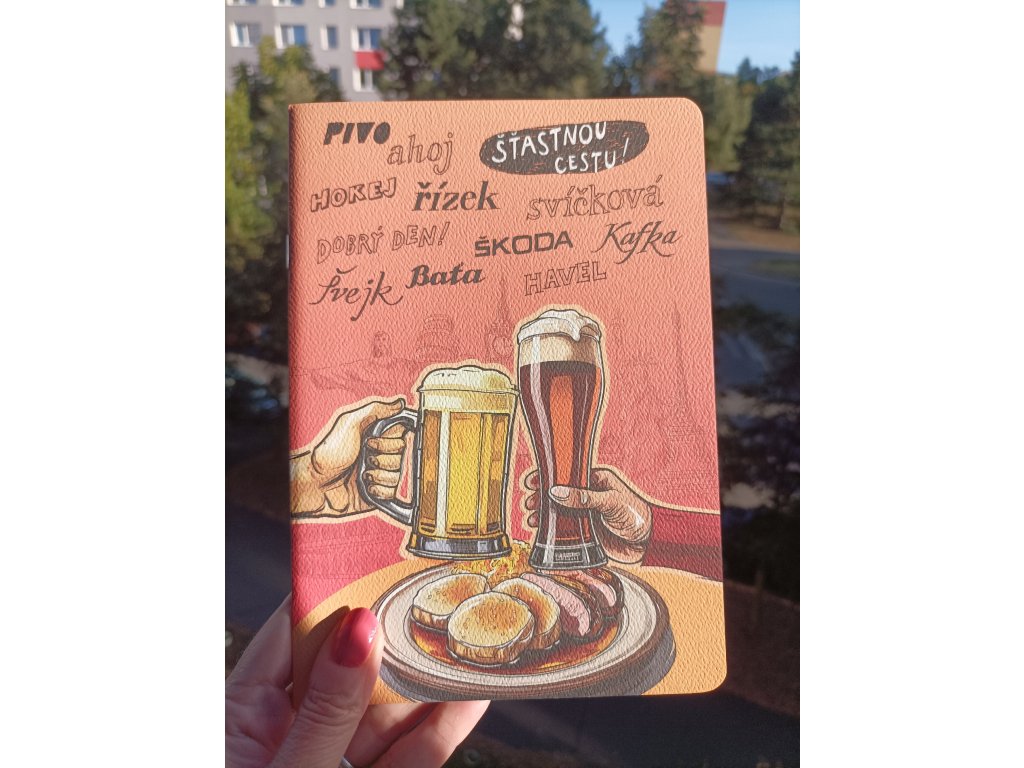 PIVO
ahoj
ŠŤASTNOU
CESTU!
HOKEJ
řízek
svíčková
DOBRÝ DEN!
ŠKODA
Kafka
Švejk
Baťa
HAVEL